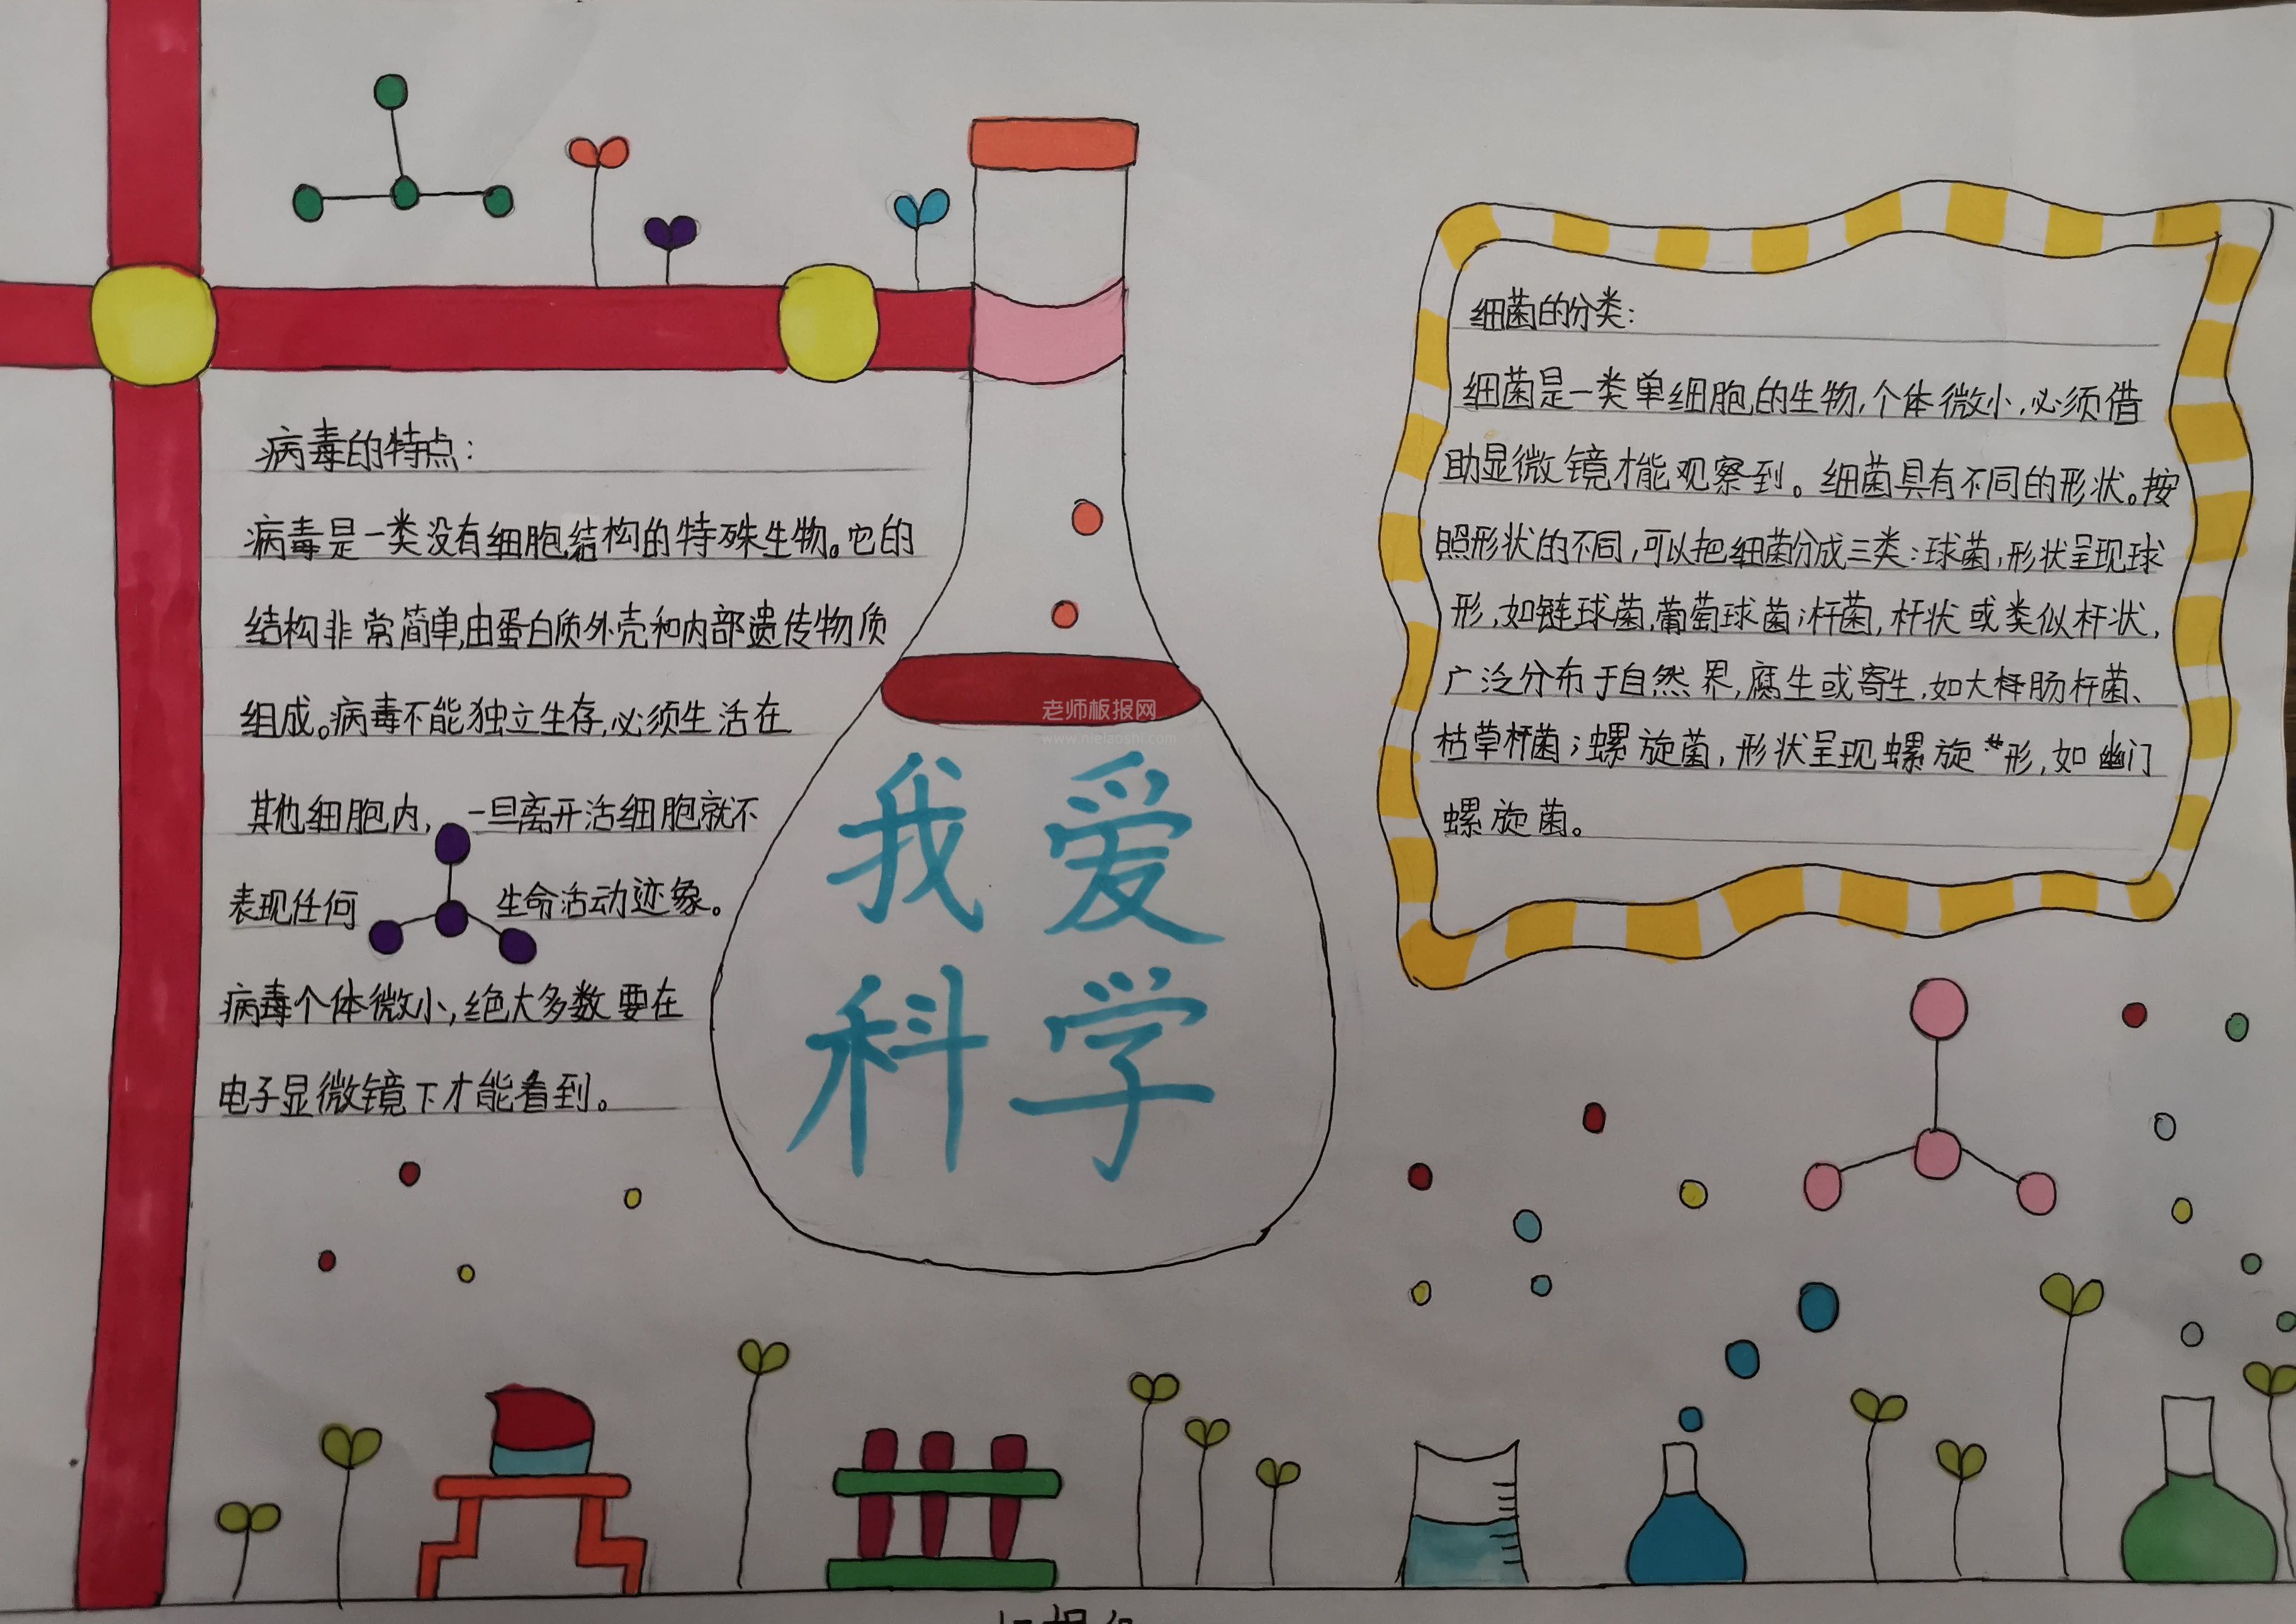 病毒的特点：
病毒是一类没有细胞结构的特殊生物。它的
结构非常简单,由蛋白质外壳和内部遗传物质
组成。病毒不能独立生存,必须生活在
其他细胞内,一旦离开活细胞就不
表现任何生命活动迹象。
病毒个体微小,绝大多数要在
电子显微镜下才能看到。
老师板报网
我爱
科学
细菌的分类：
细菌是一类单细胞的生物,个体微小,必须借
助显微镜才能观察到。细菌具有不同的形状。按
照形状的不同,可以把细菌分成三类：球菌,形状呈现球
形,如链球菌,葡萄球菌；杆菌,杆状或类似杆状,
广泛分布于自然界,腐生或寄生,如大肠杆菌、
枯草杆菌；螺旋菌,形状呈现螺旋形,如幽门
螺旋菌。